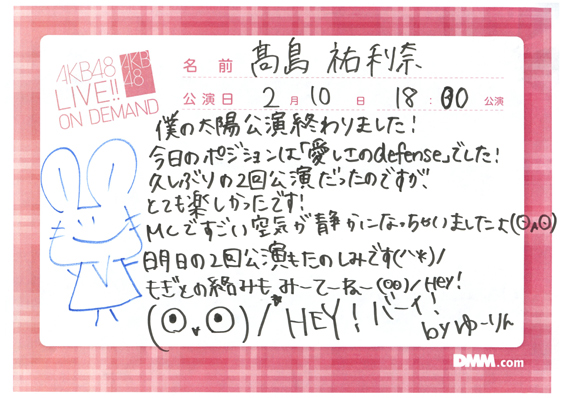 AKB48
LIVE!!
ON DEMAND
AKB
48
名前 髙島 祐利奈
公演日 2月10日 18:00公演
僕の太陽公演終わりました!
今日のポジションは「愛しさのdefense」でした!
久しぶりの2回公演だったのですが、
とても楽しかったです!
MCですごい空気が静かになっちゃいましたょ(⊙∧⊙)
明日の2回公演もたのしみです(^*)/
もぎとの絡みもみーてーねー(00)/Hey!
(⊙,⊙)/HEY!バーイ!
byゆーりん
DMM.com